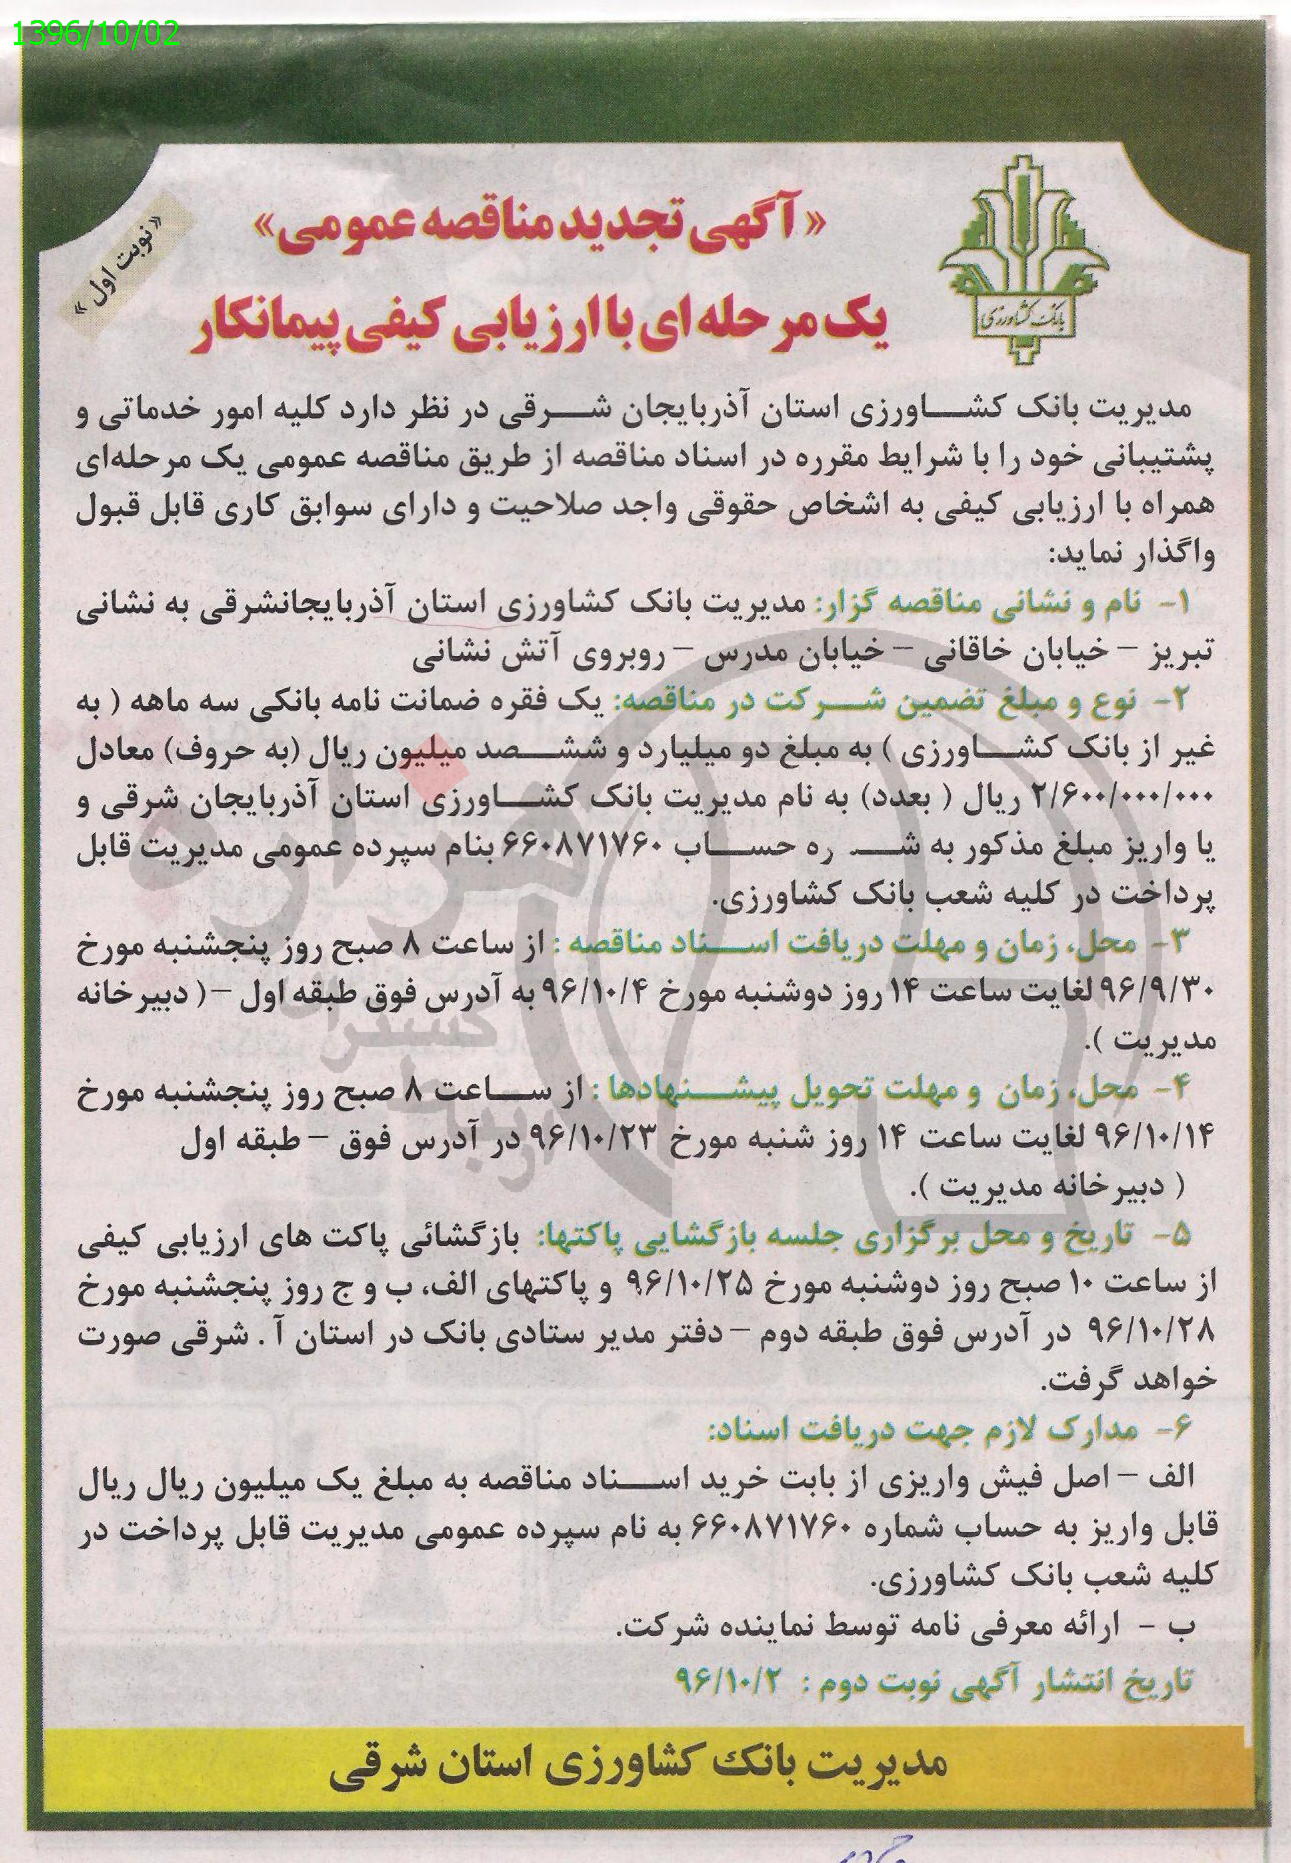 1396/10/02
« آگهی تجدید مناقصه عمومی»
«نوبت اول »
یک مرحله ای با ارزیابی کیفی پیمانکار
بانک کشاورزی
مدیریت بانک کشاورزی استان آذربایجان شرقی در نظر دارد کلیه امور خدماتی و
پشتیبانی خود را با شرایط مقرره در اسناد مناقصه از طریق مناقصه عمومی یک مرحله‌ای
همراه با ارزیابی کیفی به اشخاص حقوقی واجد صلاحیت و دارای سوابق کاری قابل قبول
واگذار نماید:
۱- نام و نشانی مناقصه گزار: مدیریت بانک کشاورزی استان آذربایجانشرقی به نشانی
تبریز – خیابان خاقانی – خیابان مدرس – روبروی آتش نشانی
۲- نوع و مبلغ تضمین شرکت در مناقصه: یک فقره ضمانت نامه بانکی سه ماهه ( به
غیر از بانک کشاورزی ) به مبلغ دو میلیارد و ششصد میلیون ریال (به حروف) معادل
۲/۶۰۰/۰۰۰/۰۰۰ ریال ( بعدد) به نام مدیریت بانک کشاورزی استان آذربایجان شرقی و
یا واریز مبلغ مذکور به ش ره حساب ۶۶۰۸۷۱۷۶۰ بنام سپرده عمومی مدیریت قابل
پرداخت در کلیه شعب بانک کشاورزی.
۳- محل، زمان و مهلت دریافت اسناد مناقصه : از ساعت ۸ صبح روز پنجشنبه مورخ
۹۶/۹/۳۰ لغایت ساعت ۱۴ روز دوشنبه مورخ ۹۶/۱۰/۴ به آدرس فوق طبقه اول –( دبیرخانه
مدیریت ).
۴- محل، زمان و مهلت تحویل پیشنهادها : از ساعت ۸ صبح روز پنجشنبه مورخ
۹۶/۱۰/۱۴ لغایت ساعت ۱۴ روز شنبه مورخ ۹۶/۱۰/۲۳ در آدرس فوق – طبقه اول
( دبیرخانه مدیریت ).
۵- تاریخ و محل برگزاری جلسه بازگشایی پاکتها: بازگشائی پاکت های ارزیابی کیفی
از ساعت ۱۰ صبح روز دوشنبه مورخ ۹۶/۱۰/۲۵ و پاکتهای الف، ب و ج روز پنجشنبه مورخ
۹۶/۱۰/۲۸ در آدرس فوق طبقه دوم – دفتر مدیر ستادی بانک در استان آ . شرقی صورت
خواهد گرفت.
۶- مدارک لازم جهت دریافت اسناد:
الف – اصل فیش واریزی از بابت خرید اسناد مناقصه به مبلغ یک میلیون ریال ریال
قابل واریز به حساب شماره ۶۶۰۸۷۱۷۶۰ به نام سپرده عمومی مدیریت قابل پرداخت در
کلیه شعب بانک کشاورزی.
ب – ارائه معرفی نامه توسط نماینده شرکت.
تاریخ انتشار آگهی نوبت دوم : ۹۶/۱۰/۲
مدیریت بانک کشاورزی استان شرقی